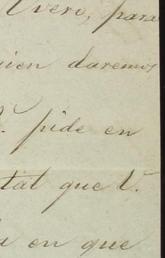 vero, para
uien daremos
V. pide en
tal que V.
en que